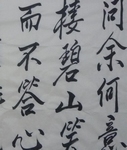 问余何意
棲碧山笑
而不答心